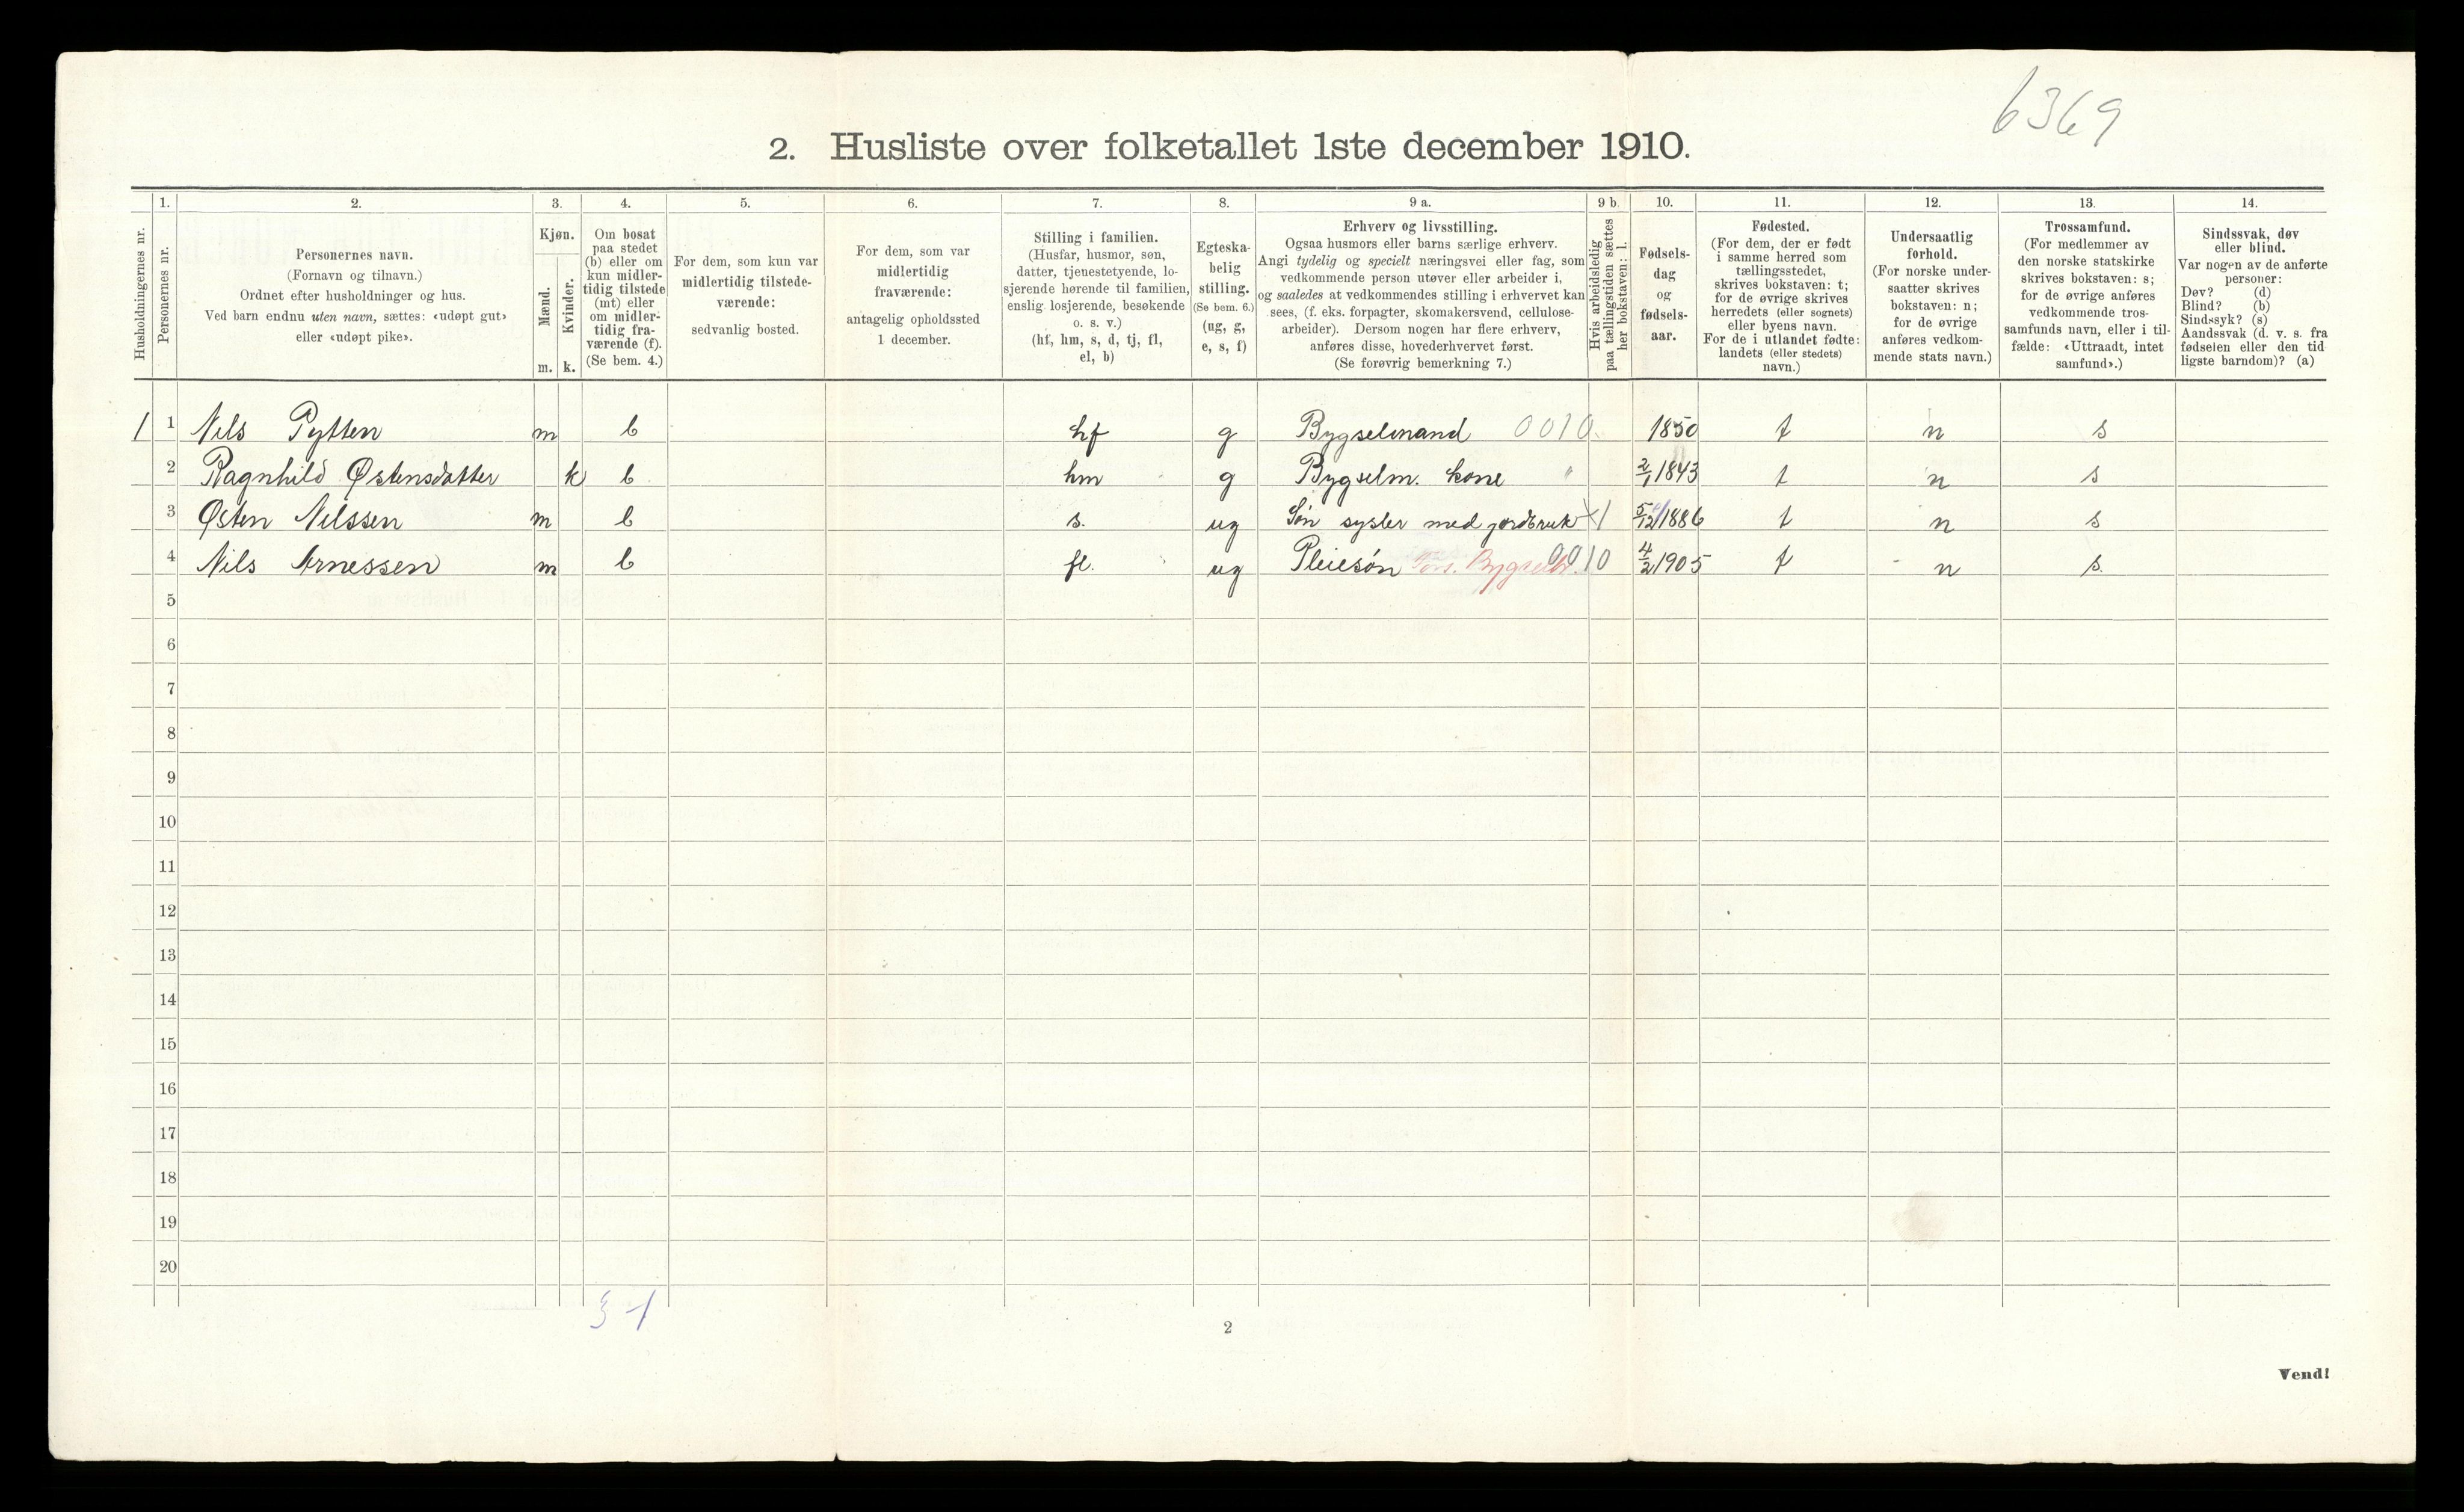 6369
2. Husliste over folketallet 1ste december 1910.
Husholdningernes nr.
1.
Personernes nr.
2.
Personernes navn.
(Fornavn og tilnavn.)
Ordnet efter husholdninger og hus.
Ved barn endnu uten navn, sættes: «udøpt gut»
eller «udøpt pike».
3.
Kjøn.
Mænd.
Kvinder.
m. k.
4.
Om bosat
paa stedet
(b) eller om
kun midler-
tidig tilstede
(mt) eller
om midler-
tidig fra-
værende (f).
(Se bem. 4.)
5.
For dem, som kun var
midlertidig tilstede-
værende:
sedvanlig bosted.
6.
For dem, som var
midlertidig
fraværende:
antagelig opholdssted
1 december.
7.
Stilling i familien.
(Husfar, husmor, søn,
datter, tjenestetyende, lo-
sjerende hørende til familien,
enslig losjerende, besøkende
o. s. v.)
(hf, hm, s, d, tj, fl,
el, b)
8.
Egteska-
belig
stilling.
(Se bem. 6.)
(ug, g,
e, s, f)
9 a.
Erhverv og livsstilling.
Ogsaa husmors eller barns særlige erhverv.
Angi tydelig og specielt næringsvei eller fag, som
vedkommende person utøver eller arbeider i,
og saaledes at vedkommendes stilling i erhvervet kan
sees, (f. eks. forpagter, skomakersvend, cellulose-
arbeider). Dersom nogen har flere erhverv,
anføres disse, hovederhvervet først.
(Se forøvrig bemerkning 7.)
9 b.
Hvis arbeidsledig
paa tællingstiden sættes
her bokstaven: l.
10.
Fødsels-
dag
og
fødsels-
aar.
11.
Fødested.
(For dem, der er født
i samme herred som
tællingsstedet,
skrives bokstaven: t;
for de øvrige skrives
herredets (eller sognets)
eller byens navn.
For de i utlandet fødte:
landets (eller stedets)
navn.)
12.
Undersaatlig
forhold.
(For norske under-
saatter skrives
bokstaven: n;
for de øvrige
anføres vedkom-
mende stats navn.)
13.
Trossamfund.
(For medlemmer av
den norske statskirke
skrives bokstaven: s;
for de øvrige anføres
vedkommende tros-
samfunds navn, eller i til-
fælde: «Uttraadt, intet
samfund».)
14.
Sindssvak, døv
eller blind.
Var nogen av de anførte
personer:
Døv? (d)
Blind? (b)
Sindssyk? (s)
Aandssvak (d. v. s. fra
fødselen eller den tid
ligste barndom)? (a)
1 1 Nils Pytten m b hf g Bygselmand 0010. 1850 t n s
2 Ragnhild Østensdatter k b hm g Bygselm. kone " 2/1 1843 t n s
3 Østen Nilssen m b s. ug Søn sysler med jordbruk 5/12 1886 t n s
4 Nils Arnessen m b fl. ug Pleiesøn 0010 4/2 1905 t n s.
5
6
7
8
9
10
11
12
13
14
15
16
17
18
19
20
3 - 1
2
Vend!